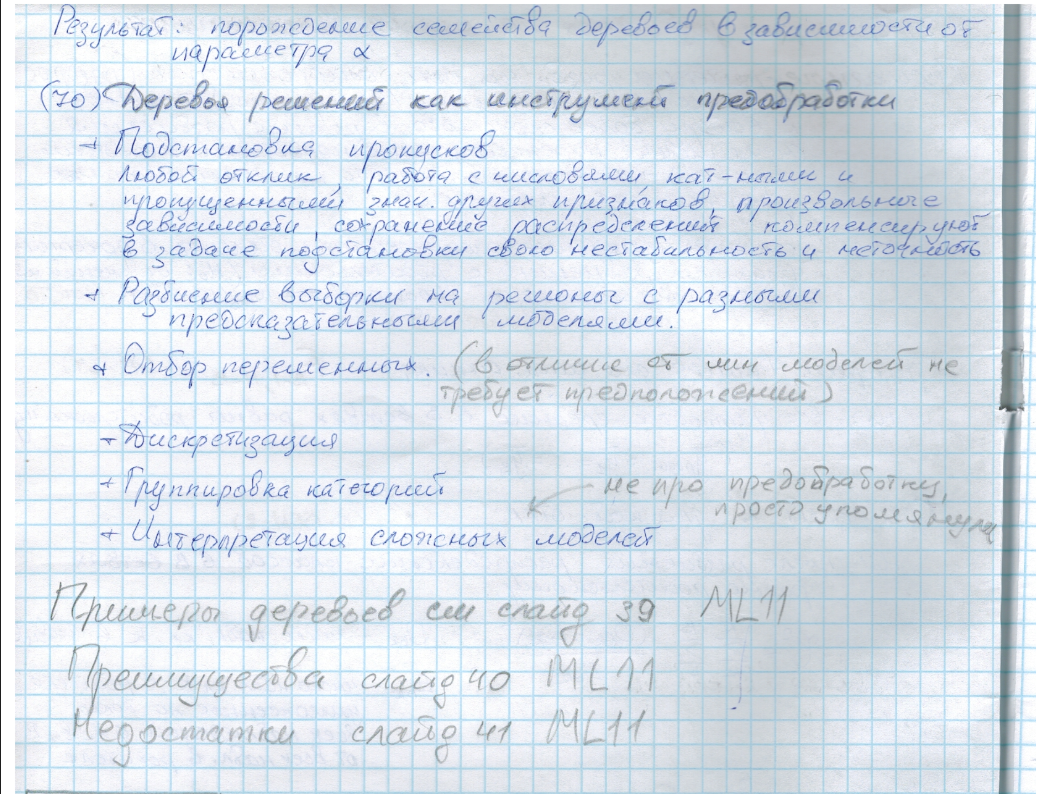 Результат: порождение семейства деревьев в зависимости от
параметра α
(70) Деревья решений как инструмент предобработки
+ Подстановка пропусков
любой отклик, работа с числовыми, кат-ными и
пропущенными знач. других признаков, произвольные
зависимости, сохранение распределений компенсируют
в задаче подстановки свою нестабильность и неточность
+ Разбиение выборки на регионы с разными
предсказательными моделями.
+ Отбор переменных. (в отличие от лин моделей не
требует предположений)
+ Дискретизация
+ Группировка категорий
не про предобработку,
просто упомянули
+ Интерпретация сложных моделей
Примеры деревьев см слайд 39 ML11
Преимущества слайд 40 ML11
Недостатки слайд 41 ML11